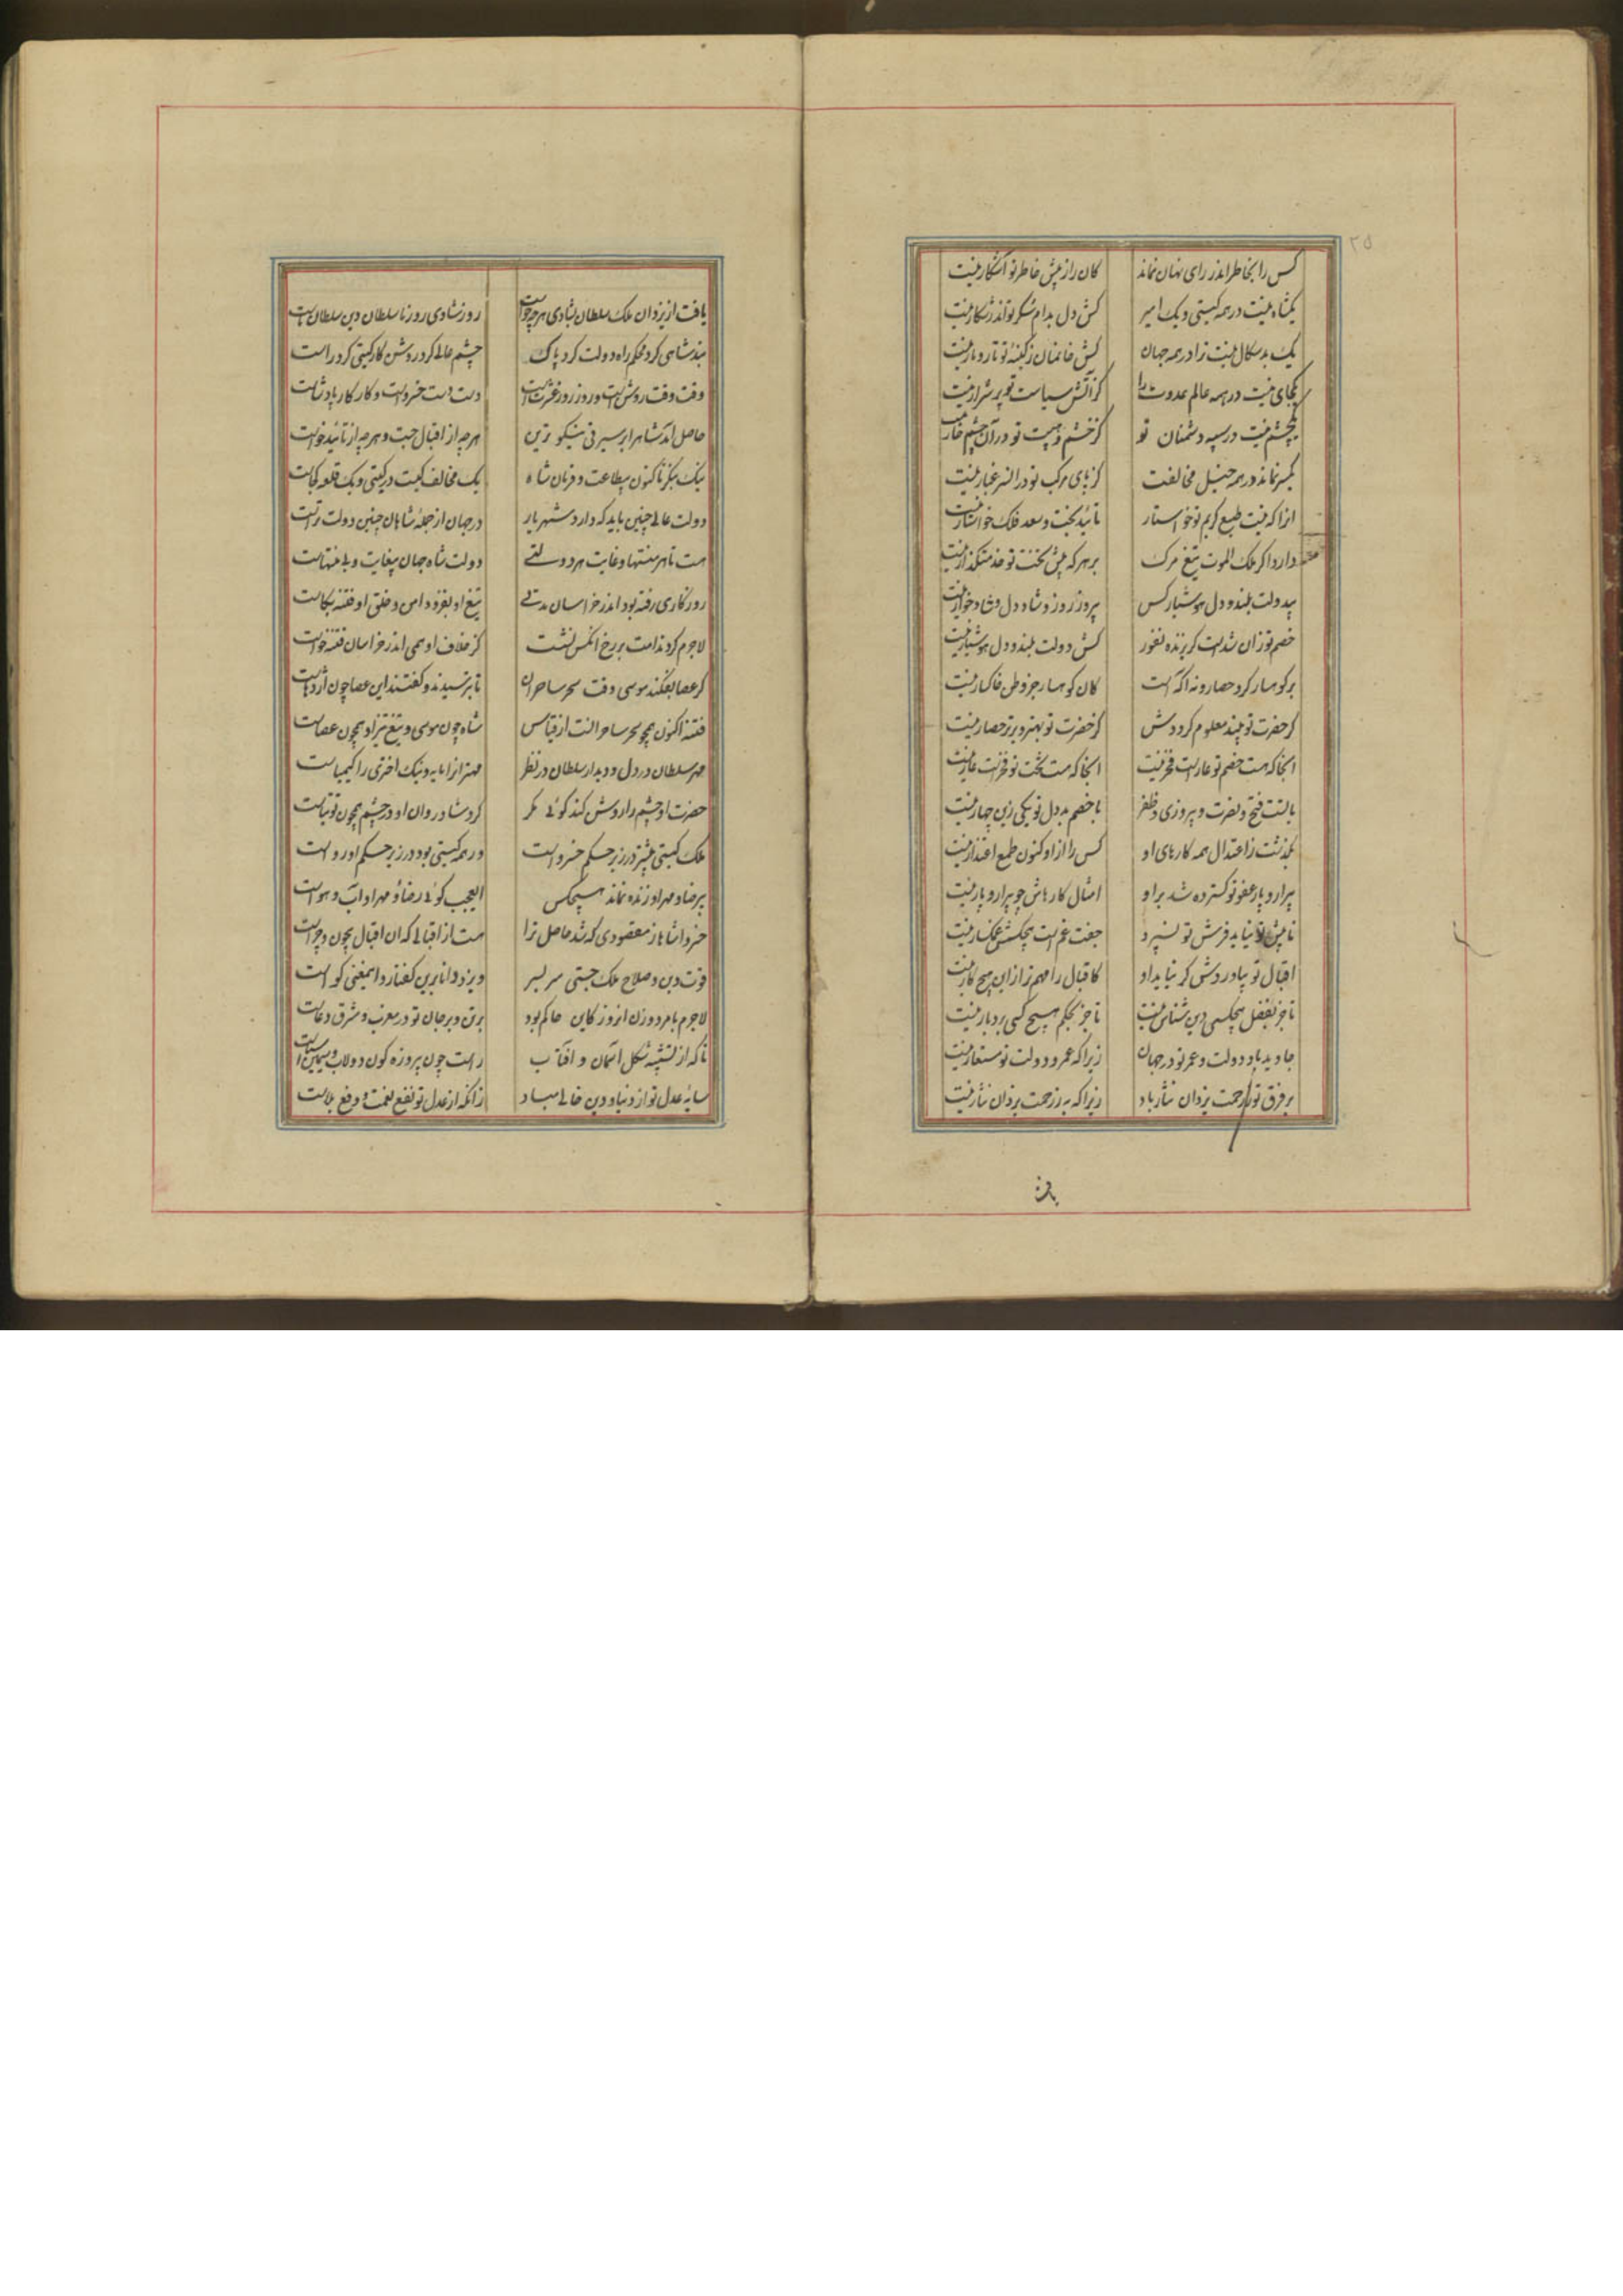 ۲۵
کس را بخاطر اندر رای نهان نماند کان راز پیش خاطر تو آشکار نیست
یکشاه نیست در همه گیتی و یک امیر کش دل بدام شکر تو اندر شکار نیست
یک بدسگال نیست ترا در همه جهان کش خانمان ز کینهٔ تو تار و مار نیست
یکجای نیست در همه عالم عدوت را کز آتش سیاست تو پر شرار نیست
یکچشم نیست در سپه دشمنان تو کز خشم و هیبت تو در آن چشم خار نیست
یکسر نماند در همه خیل مخالفت کز پای مرکب تو در آن سر غبار نیست
آنرا که نیست طبع کریم تو خواستار تائید بخت و سعد فلک خواستار نیست
دارد اگر ملک الموت تیغ مرگ بر هر که پیش تخت تو خدمتگذار نیست
بیدولت بلند و دل هوشیار کس پیروز روز و شاد دل و شادخوار نیست
خصم تو زان شدست گریزنده نفور کش دولت بلند و دل هوشیار نیست
بر کوهسار کرد حصار و نه آگه است کان کوهسار جز وطن خاکسار نیست
گر حضرت تو بیند معلوم گرددش کز حضرت تو بهتر و برتر حصار نیست
آنجا که هست خصم تو عارست فخر نیست آنجا که هست تخت تو فخرست عار نیست
با تست فتح و نصرت و پیروزی و ظفر با خصم بددل تو یکی زین چهار نیست
بگذشت ز اعتدال همه کارهای او کس را ازو کنون طمع اعتذار نیست
پیرار و پار عفو تو گسترده شد بر او امثال کارهاش چو پیرار و پار نیست
تا پیش تو نیاید فرش تو نسپرد جفت غم است هیچکسش غمگسار نیست
اقبال تو بیاوردش گر نیاید او کاقبال را مهم‌تر ازین هیچ کار نیست
تا جز بفضل هیچکسی دین شناس نیست تا جز بحکم هیچ کسی بردبار نیست
جاوید باد دولت و عمر تو در جهان زیرا که عمر و دولت تو مستعار نیست
بر فرق تو ز رحمت یزدان نثار باد زیرا که به ز رحمت یزدان نثار نیست
یافت
یافت از یزدان ملک سلطان بشادی هرچه خواست روز شادی روز ما سلطان دین سلطان ماست
بند شاهی کرد محکم راه دولت کرد پاک چشم عالم کرد روشن کار گیتی کرد راست
وقت وقت روشن است و روز روز عشرت است دست دست خسرو است و کار کار پادشاست
حاصل آمد شاه را بر سیرتی نیکوترین هرچه از اقبال جست و هرچه از تائید خواست
نیک بنگر تا کنون بیطاعت و فرمان شاه یک مخالف کیست در گیتی و یک قلعه کجاست
دولت عالی چنین باید که دارد شهریار در جهان از جملهٔ شاهان چنین دولت کراست
هست تا هر منتها و غایت هر دولتی دولت شاه جهان بیغایت و بی منتهاست
روزگاری رفته بود اندر خراسان مدتی تیغ او بفزود امن و خلق او فتنه بکاست
لاجرم گرد ندامت بر رخ آنکس نشست کز خلاف او همی اندر خراسان فتنه خواست
گر عصا بفکند موسی وقت سحر ساحران تا بترسیدند و گفتند این عصا چون اژدهاست
فتنه اکنون همچو سحر ساحرانست از قیاس شاه چون موسی و تیغ تیز او همچون عصاست
مهر سلطان در دل و دیدار سلطان در نظر مهتران را مایه و نیک اختری را کیمیاست
حضرت او چشم را روشن کند گوئی مگر گرد شادروان او در چشم همچون توتیاست
ملک گیتی بیشتر در زیر حکم خسرو است ور همه گیتی بود در زیر حکم او رواست
بی رضا و مهر او زنده نماند هیچکس ای عجب گوئی رضا و مهر او آب و هواست
خسروا شاها ز مقصودی که شد حاصل ترا هست از اقبالی که آن اقبال بیچون و چراست
قوت دین و صلاح ملک جستی سر بسر ویزد دانا برین گفتار و این معنی گواست
لاجرم با مرد و زن امروز کاین حاکم بود بر تن و بر جان تو در مغرب و مشرق دعاست
تا که از تشبیه شکل آسمان و آفتاب راست چون پیروزه گون دولاب و سیمین آسیاست
سایهٔ عدل تو از دنیا و دین خالی مباد زانکه از عدل تو نفع نعمت و دفع بلاست